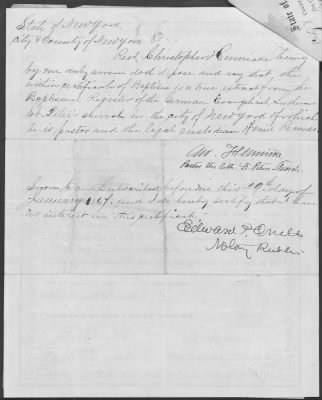 State of New York
City & County of New York
being
by me duly sworn doth depose and say that the
within certificate of Baptism is a true extract from the
Baptismal Register of the German Evangelical Lutheran
St. Peter's church in the city of New York of which
he is pastor and the legal custodian of said Records.
Pastor
Sworn to and subscribed before me this 29th day of
January and I do hereby certify that I have
no interest in this certificate.
Edward P.
Notary Public
State of